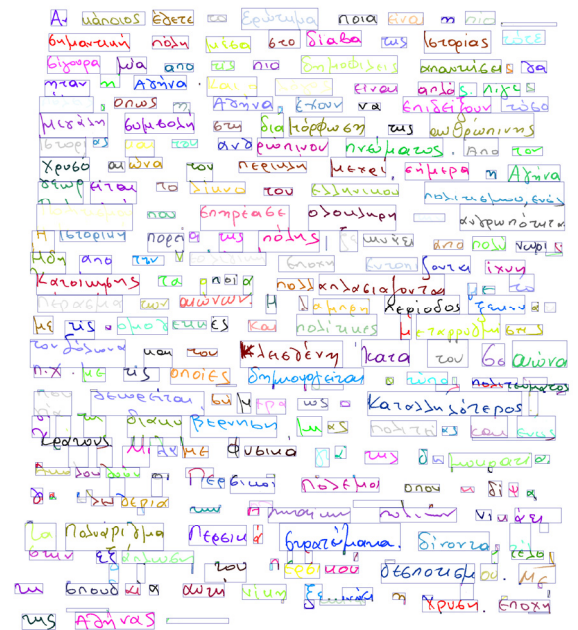 Αν κάποιος έθετε το ερώτημα ποια είναι η πιο
σημαντική πόλη μέσα στο διάβα της Ιστορίας τότε
σίγουρα μια από τις πιο δημοφιλείς απαντήσεις θα
ήταν η Αθήνα. και ο είναι απλός. λίγες
, όπως η Αθήνα, έχουν να επιδείξουν τόσο
μεγάλη συμβολή στη διαμόρφωση της ανθρώπινης
ιστορίας και του ανθρώπινου πνεύματος. Από τον
χρυσό αιώνα του Περικλή μέχρι σήμερα η Αθήνα
θεωρείται το λίκνο του ελληνικού πολιτισμού, ενός
που επηρέασε ολόκληρη ανθρωπότητα
Η ιστορική πορεία της πόλης, ξεκινάει από πολύ νωρίς
Ήδη από την εποχή εντοπίζονται ίχνη
κατοίκησης τα οποία πολλαπλασιάζονται με το
πέρασμα των αιώνων. Η λαμπρή περίοδος ξεκινά
με τις νομοθετικές και πολιτικές μεταρρυθμίσεις
του Σόλωνα και του Κλεισθένη κατά τον 6ο αιώνα
π.Χ. με τις οποίες δημιουργείται ο τύπος πολιτεύματος
που θεωρείται σήμερα ως ο καταλληλότερος
για τη διακυβέρνηση μιας πολιτείας και ενός
κράτους. Μιλάμε φυσικά για της δημοκρατία.
Ακολουθούν οι Περσικοί πόλεμοι όπου η δίψα
για ελευθερία των Αθηναίων πολιτών νικάει
τα πολυάριθμα Περσικά στρατεύματα. δίνοντας τέλος
στην εξάπλωση του περσικού δεσποτισμού. Με
τη σπουδαία αυτή νίκη ξεκινάει η Χρυσή. Εποχή
της Αθήνας